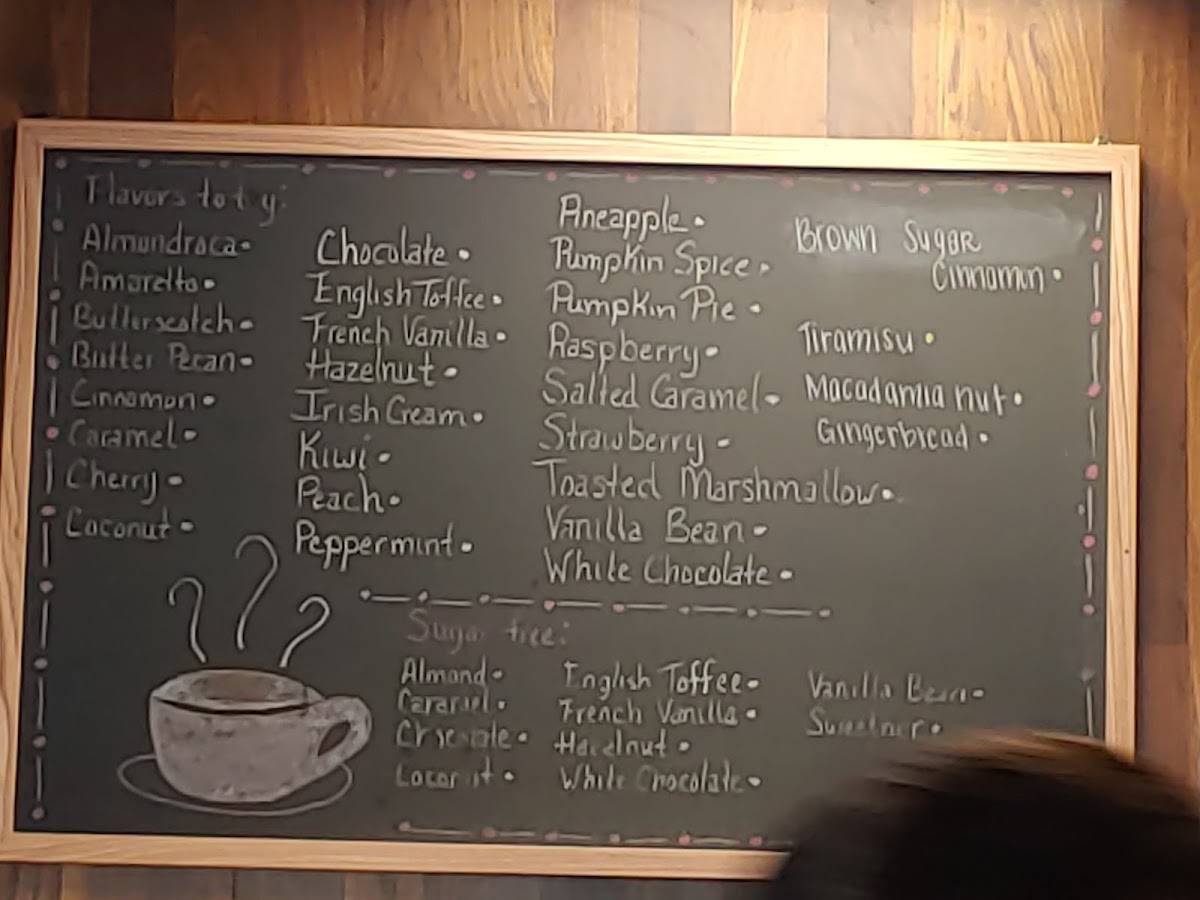 Flavors to t y:
Almondroca
Amaretto
Butterscotch
Butter Pecan
Cinnamon
Caramel
Cherry
Coconut
Chocolate
English Toffee
French Vanilla
Hazelnut
Irish Cream
Kiwi
Peach
Peppermint
Pineapple
Pumpkin Spice
Pumpkin Pie
Raspberry
Salted Caramel
Strawberry
Toasted Marshmallow
Vanilla Bean
White Chocolate
Brown Sugar
Cinnamon
Tiramisu
Macadamia nut
Gingerbread
Sugar free:
Almond
Caramel
Chocolate
Coconut
English Toffee
French Vanilla
Hazelnut
White Chocolate
Vanilla Bean
Sweetner